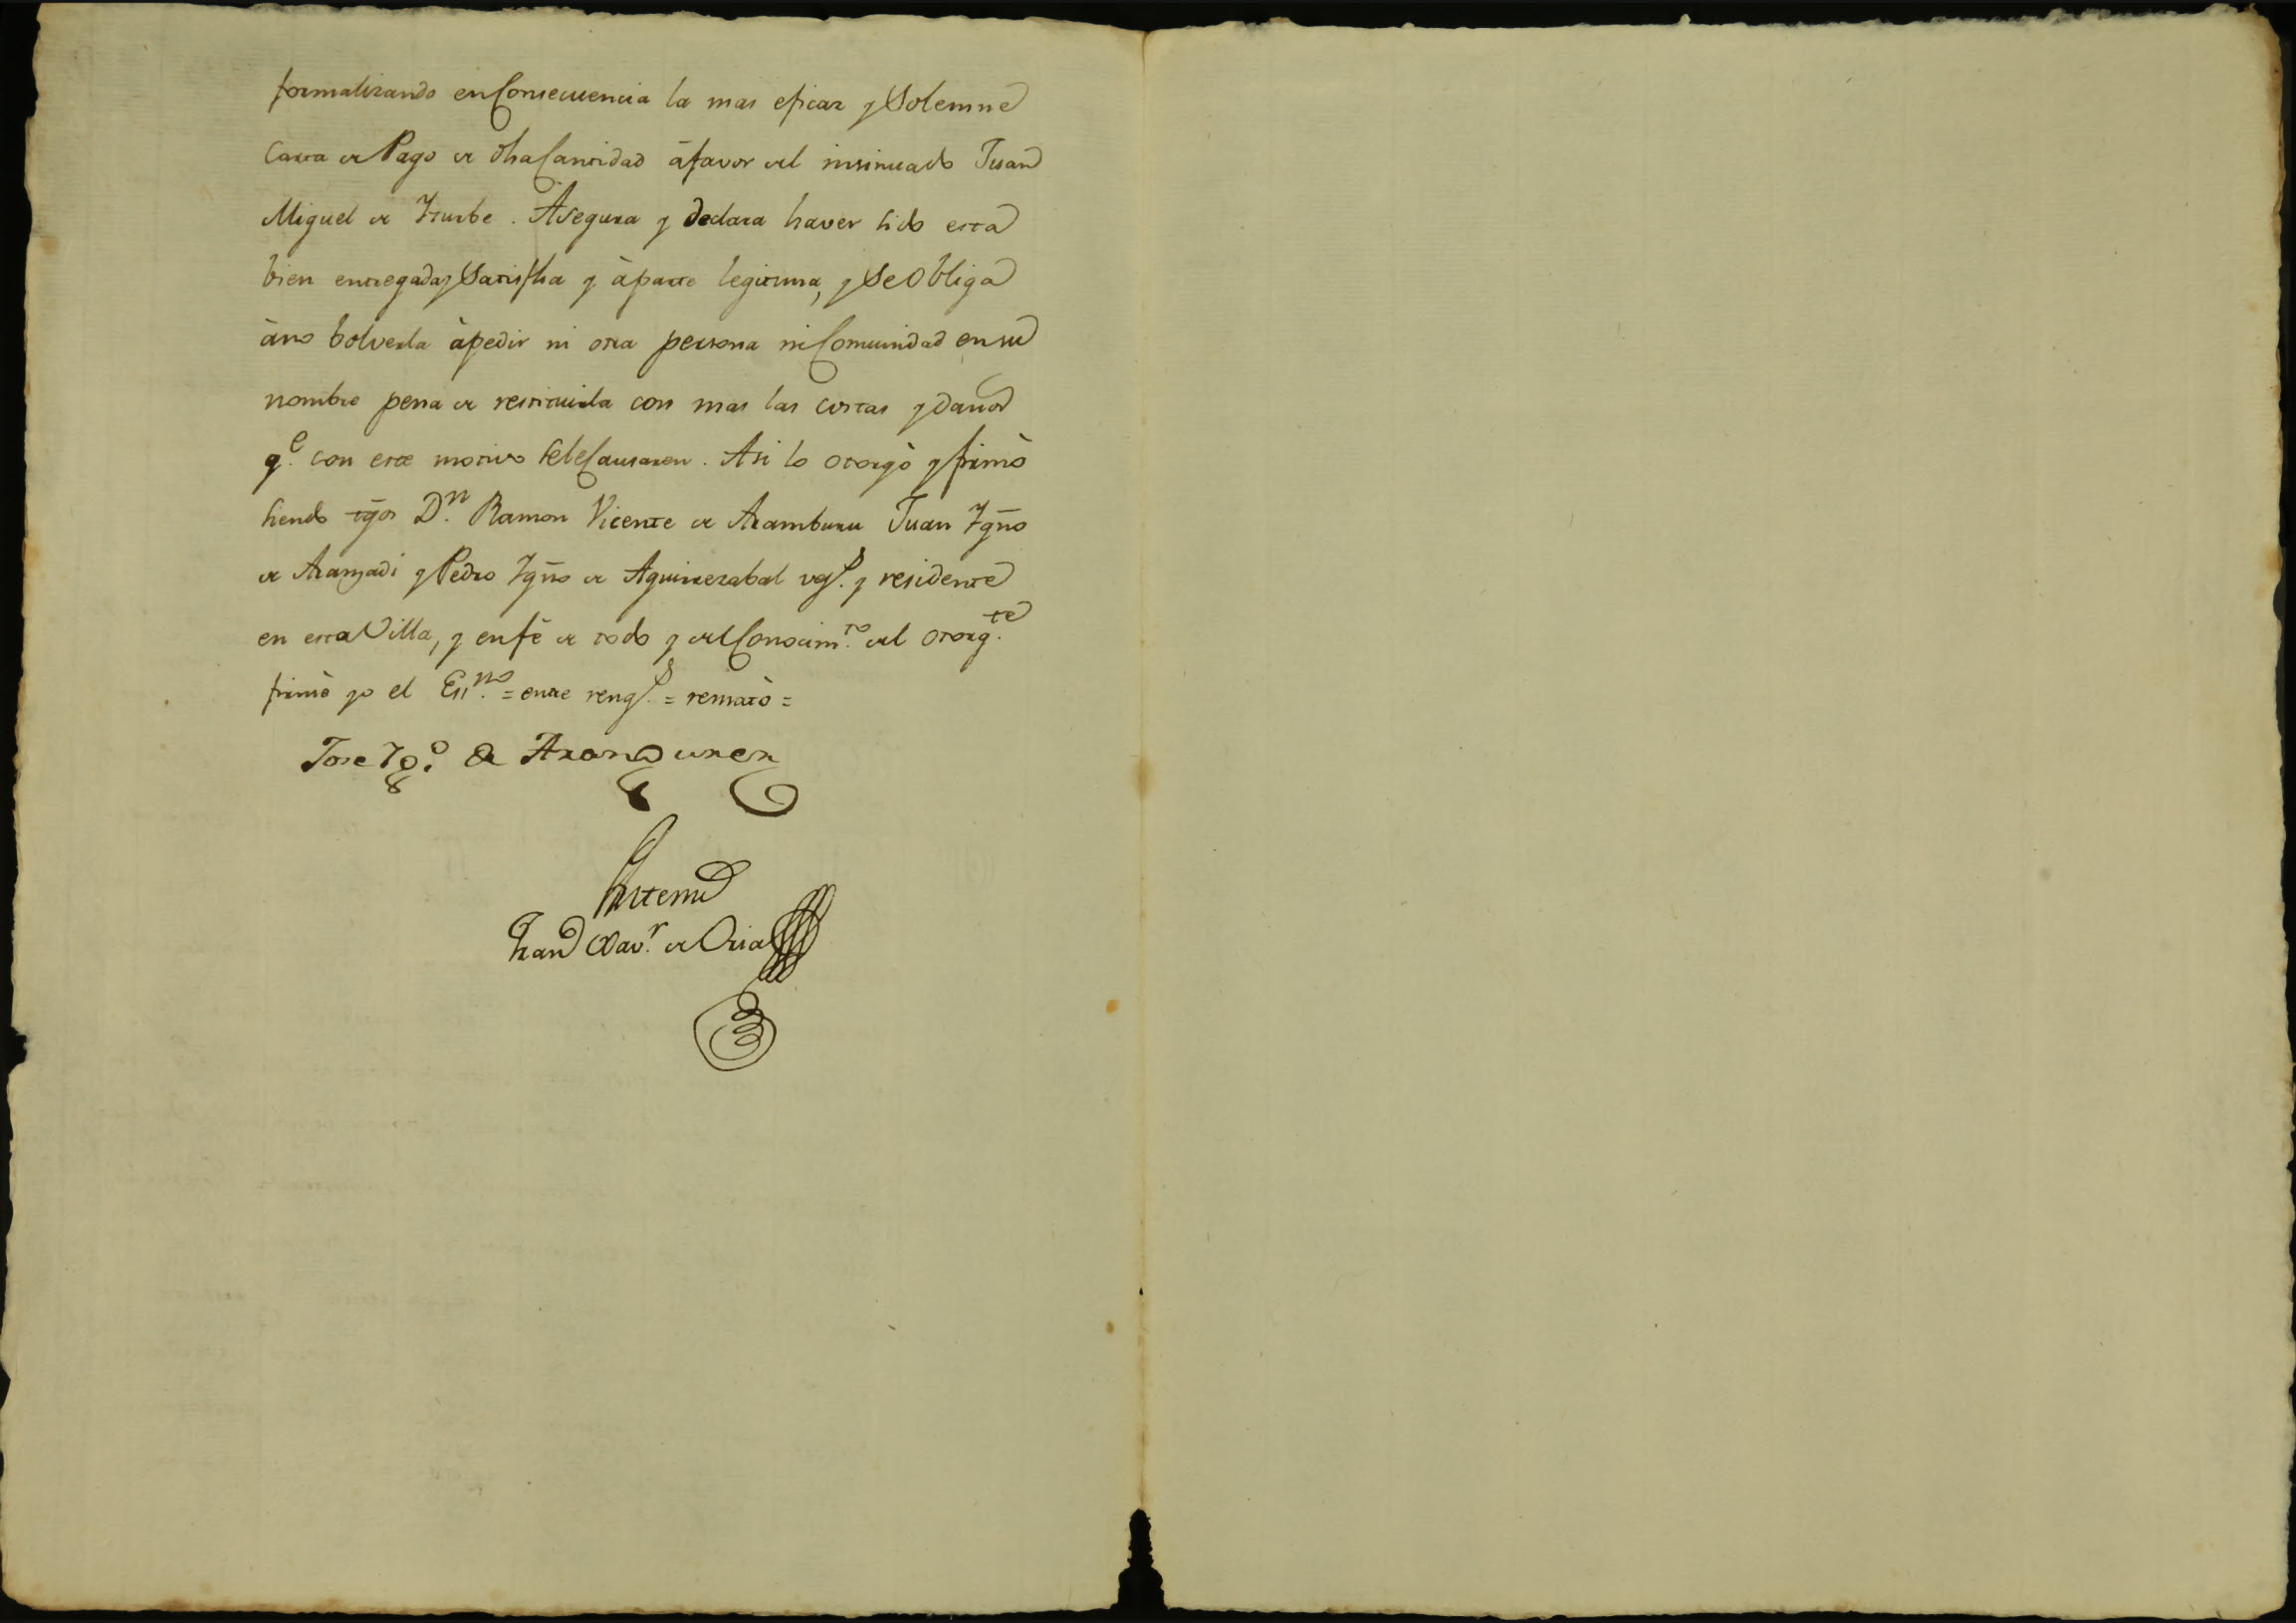 formalizando en Consecuencia la mas eficaz y Solemne
Carta de Pago de dha Cantidad à favor del insinuado Juan
Miguel de Yturbe. Asegura y declara haver sido esta
bien entregada y Satisfha y à parte legitima, y Se Obliga
à no bolverla à pedir ni otra persona ni Comunidad en su
nombre pena de restituirla con mas las costas y daños
q.e con este motivo se le Causaren. Asi lo otorgò y firmò
siendo tgos D.n Ramon Vicente de Aramburu Juan Ygño
de Aranzadi y Pedro Ygño de Aguirrezabal vez.s y residente
en esta Villa, y en fè de todo y del Conocim.to del otorg.te
firmè yo el Ess.no = entre reng.s = rematò =
Jose Yg.o de Aranguren
Ante mi
Fran Xav.r de Oria